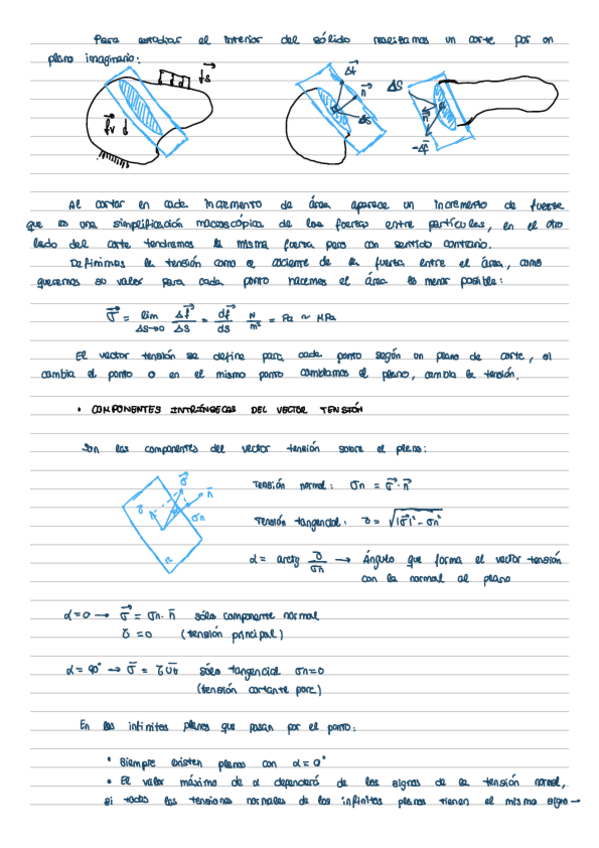 Para estudiar el interior del sólido realizamos un corte por un
plano imaginario:
Δf⃗
n⃗
ΔS
f⃗s
f⃗v
ΔS
n⃗
-Δf⃗
Al cortar en cada incremento de área aparece un incremento de fuerza
que es una simplificación macroscópica de las fuerzas entre partículas, en el otro
lado del corte tendremos la misma fuerza pero con sentido contrario.
Definimos la tensión como el cociente de la fuerza entre el área, como
queremos su valor para cada punto hacemos el área lo menor posible:
σ⃗ = lim ΔS→0 Δf⃗/ΔS = df⃗/dS N/m² = Pa ~ MPa
El vector tensión se define para cada punto según un plano de corte, si
cambia el punto o en el mismo punto cambiamos el plano, cambia la tensión.
• COMPONENTES INTRÍNSECAS DEL VECTOR TENSIÓN
Son las componentes del vector tensión sobre el plano:
σ⃗
n⃗
τ
σn
α
Tensión normal: σn = σ⃗ · n⃗
Tensión tangencial: τ = √|σ⃗|² - σn²
α = arctg τ/σn → Ángulo que forma el vector tensión
con la normal al plano
α=0 → σ⃗ = σn · n̄ sólo componente normal
τ=0 (tensión principal)
α=90° → σ̄ = τ ūt sólo tangencial σn=0
(tensión cortante pura)
En los infinitos planos que pasan por el punto:
• Siempre existen planos con α=0°
• El valor máximo de α dependerá de los signos de la tensión normal,
si todas las tensiones normales de los infinitos planos tienen el mismo signo →